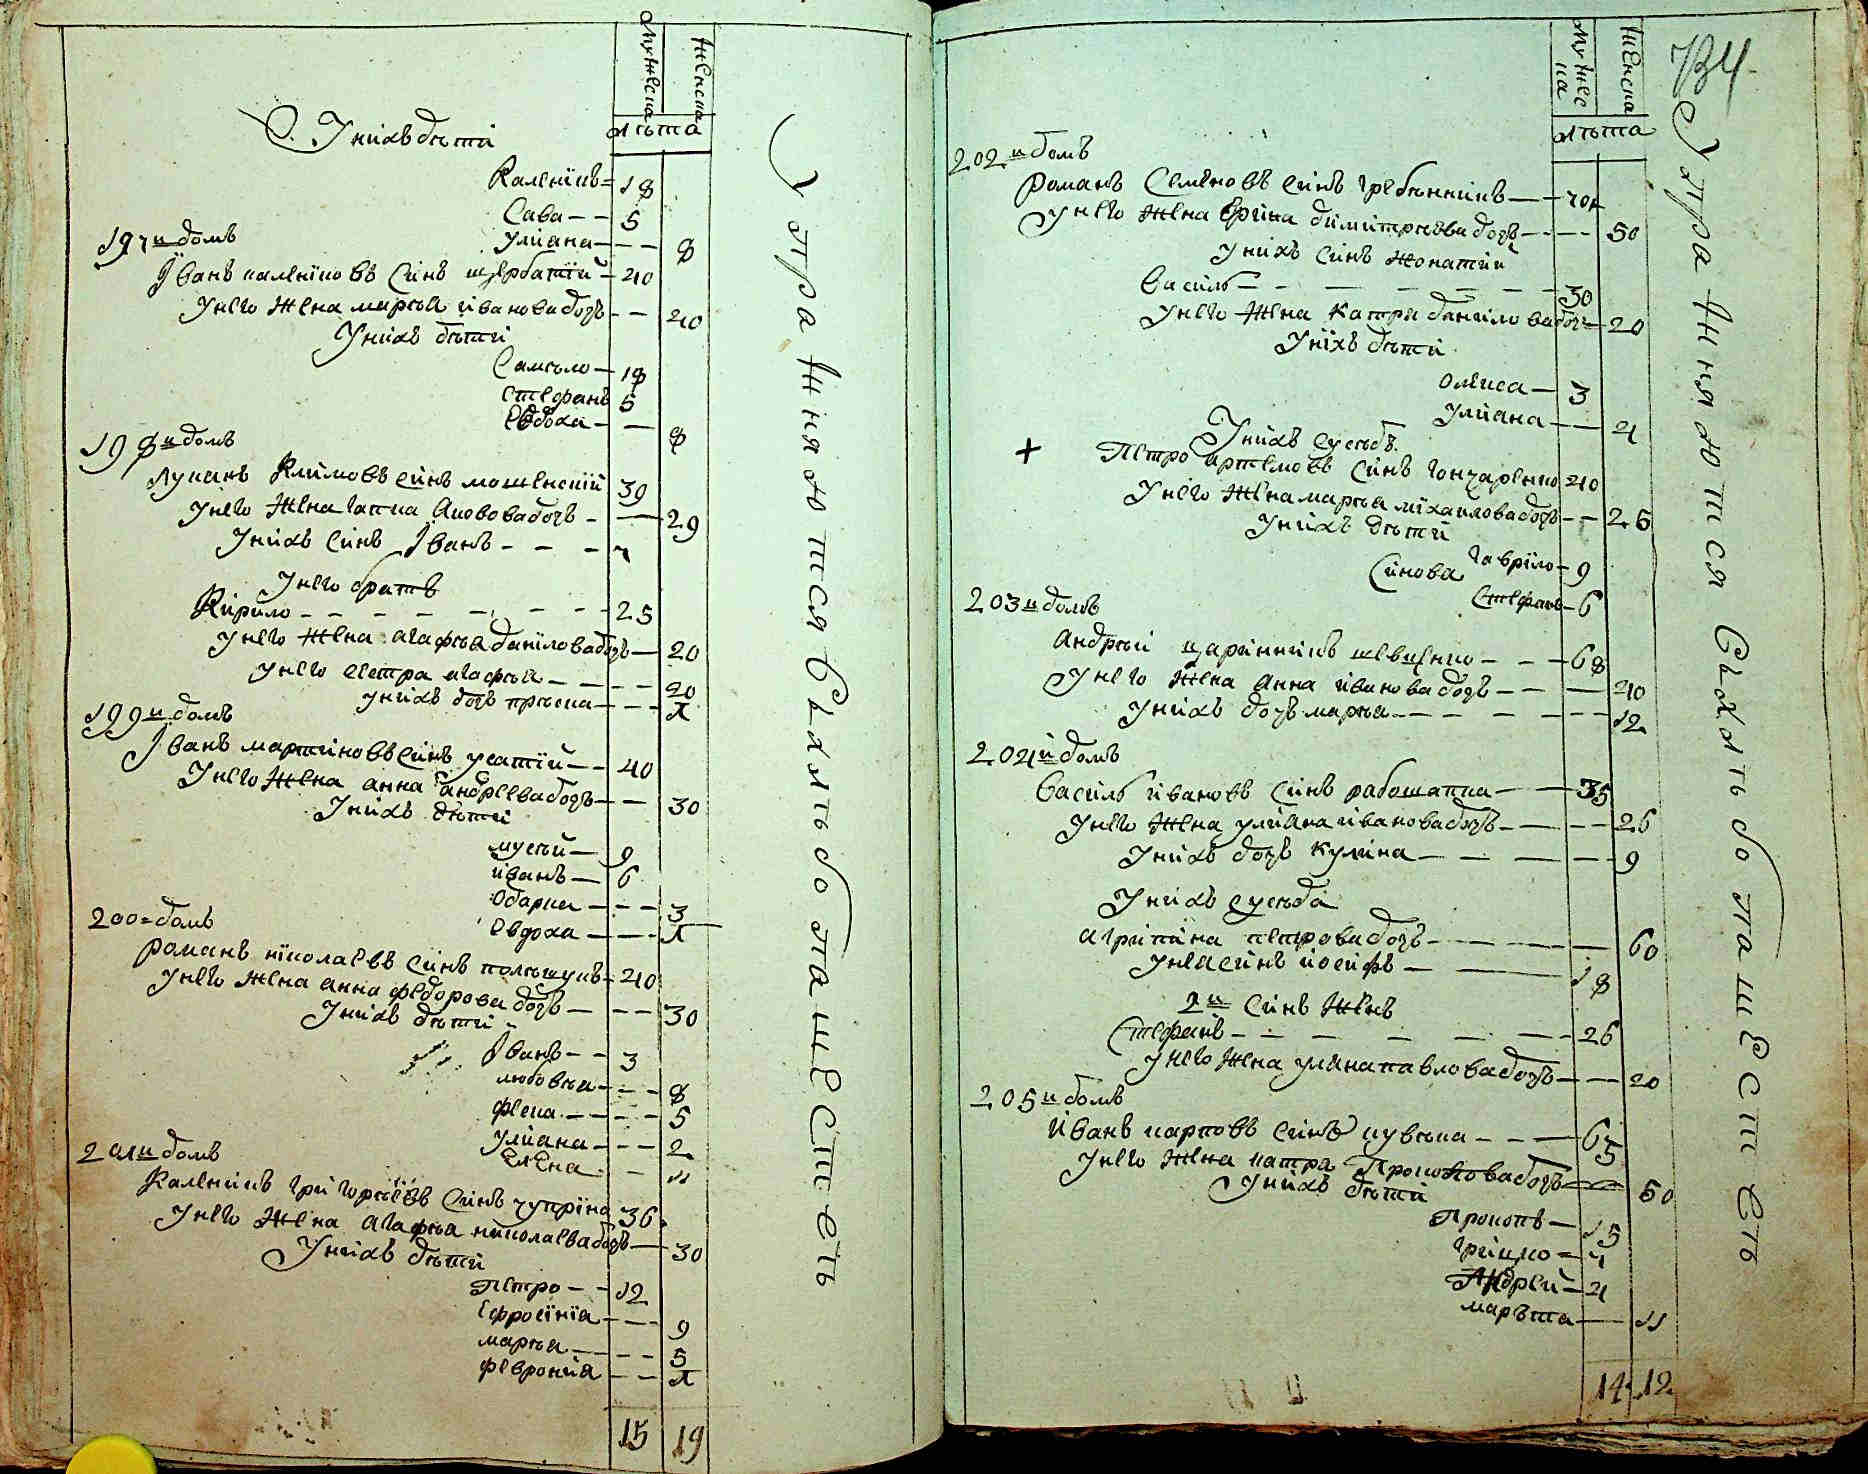 Мужеска
Женска
лѣта
У нихъ дѣти
Каленикъ 18
Сава 5
Улияна 8
197й домъ
Иванъ каленіковъ синъ щербатій 40
У него жена марѳа иванова дочь 40
У нихъ дѣти
Самойло 18
Стефанъ 5
Евдоха 8
198й домъ
Лукянъ Климовъ синъ мошенскій 39
У него жена гапка Яковова дочь 29
У нихъ синъ Іванъ 7
У него братъ
Кирило 25
У него жена агафія данілова дочь 20
У него сестра агафія 20
У нихъ дочь пріска 1
199й домъ
Іванъ мартіновъ синъ усатій 40
У него жена анна андреева дочь 30
У нихъ дѣти
мусѣй 9
иванъ 6
Одарка 3
Евдоха 1
200 домъ
Романъ ніколаевъ синъ полѣщукъ 40
У него жена анна федорова дочь 30
У нихъ дѣти
Іванъ 3
любовка 8
фенка 5
Улияна 2
Елена 11
201й домъ
Каленикъ григорѣевъ синъ чупріна 36
У него жена агафія николаева дочь 30
У нихъ дѣти
Петро 12
Ефросінія 9
марія 5
февронія 1
15 19
Мужеска
Женска
734
лѣта
202й домъ
Романъ Семеновъ синъ гребѣнникъ 70
У него жена Ерина димитриева дочь 50
У нихъ синъ жонатій
Василь 30
У него жена Катря данилова дочь 20
У ніхъ дѣти
Олекса 3
Улияна 4
У нихъ сусѣдъ
+ Петро артемовъ синъ гончаренко 40
У него жена марѳа міхаилова дочь 25
У нихъ дѣти
Гавріло 9
Синова
Стефанъ 6
203й домъ
Андрѣй царінникъ шевченко 68
У него жена анна іванова дочь 40
У нихъ дочь марѳа 12
204й домъ
Василь ивановъ синъ рабошапка 35
У него жена улияна иванова дочь 26
У нихъ дочь куліна 9
У нихъ сусѣда
Агрипіна петрова дочь 60
У нея синъ иосифъ 18
2й синъ жен
Стефанъ 26
У него жена уляна павлова дочь 20
205й домъ
Иванъ карповъ синъ кувѣка 65
У него жена катря Прокопова дочь 50
У нихъ дѣти
Прокопъ 15
Грицко 7
Андрей 4
марѣна 11
14 12